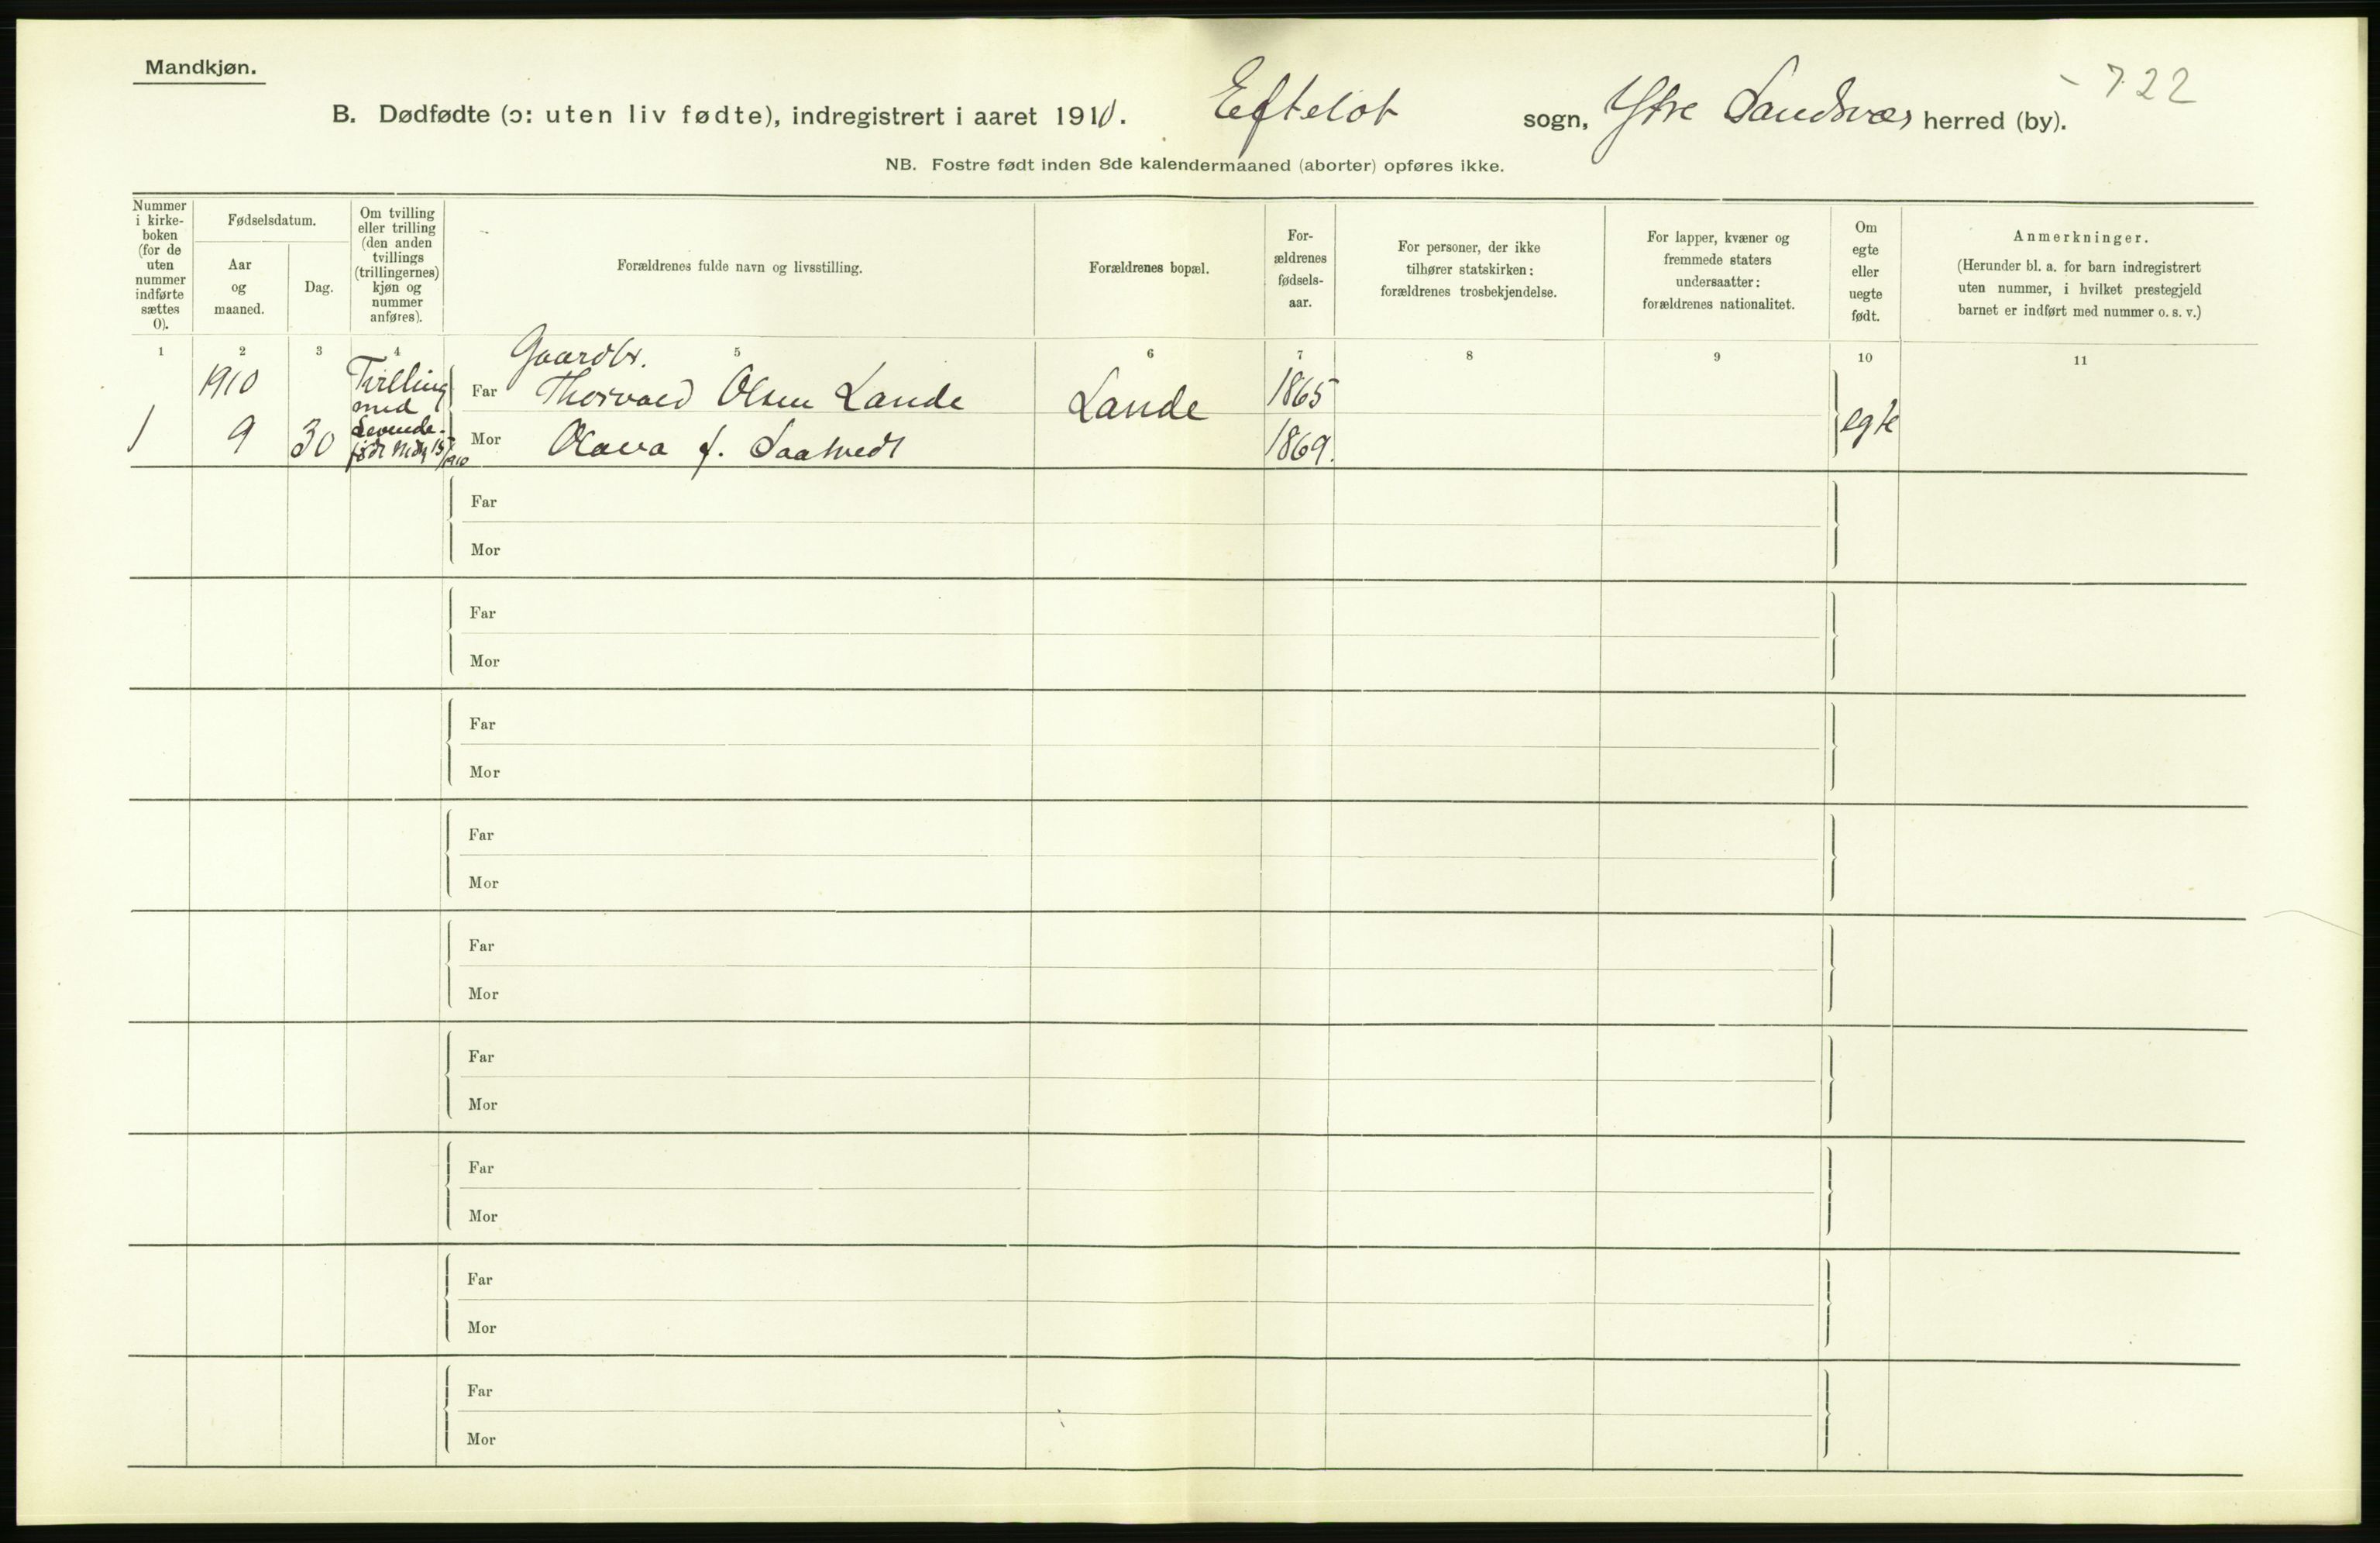 Mandkjøn.
- 722
B. Dødfødte (ɔ: uten liv fødte), indregistrert i aaret 1910. Efteløt sogn, Ytre Sandsvær herred (by).
NB. Fostre født inden 8de kalendermaaned (aborter) opføres ikke.
Nummer
i kirke-
boken
(for de
uten
nummer
indførte
sættes
0).
Fødselsdatum.
Aar
og
maaned.
Dag.
Om tvilling
eller trilling
(den anden
tvillings
(trillingernes)
kjøn og
nummer
anføres).
Forældrenes fulde navn og livsstilling.
Forældrenes bopæl.
For-
ældrenes
fødsels-
aar.
For personer, der ikke
tilhører statskirken:
forældrenes trosbekjendelse.
For lapper, kvæner og
fremmede staters
undersaatter:
forældrenes nationalitet.
Om
egte
eller
uegte
født.
Anmerkninger.
(Herunder bl. a. for barn indregistrert
uten nummer, i hvilket prestegjeld
barnet er indført med nummer o. s. v.)
1 2 3 4 5 6 7 8 9 10 11
1
1910
9
30
Tvilling
med
Levende-
født No 15
1910
Gaardbr.
Far Thorvald Olsen Lande
Mor Olava f. Saatvedt
Lande
1865
1869.
egte
Far
Mor
Far
Mor
Far
Mor
Far
Mor
Far
Mor
Far
Mor
Far
Mor
Far
Mor
Far
Mor